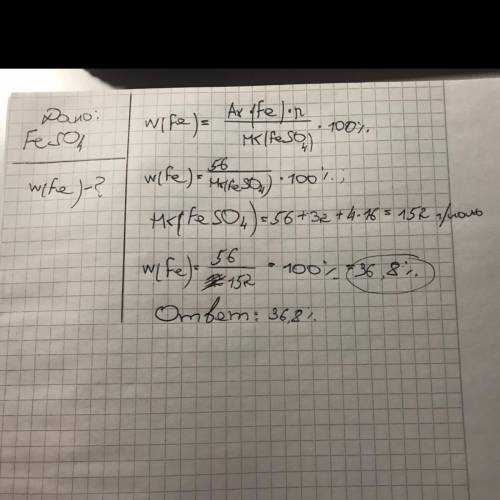 Дано:
FeSO4
w(Fe)-?
w(Fe) = Ar(Fe)·n / Mr(FeSO4) · 100%
w(Fe) = 56 / Mr(FeSO4) · 100%;
Mr(FeSO4) = 56 + 32 + 4·16 = 152 г/моль
w(Fe) = 56 / 152 · 100% = 36,8%
Ответ: 36,8%